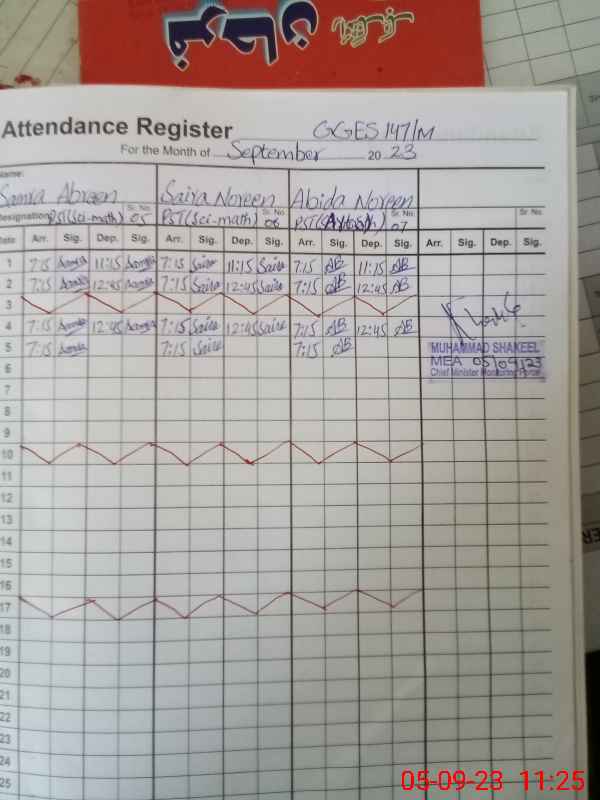 Attendance Register GGES 147/M
For the Month of September 2023
Name:
Samra Abreen Saiya Noreen Abida Noreen
Designation PST(Sci-math) Sr. No. 05 PST(Sci-math) Sr. No. 06 Sr. No. 07 Sr. No.
Date Arr. Sig. Dep. Sig. Arr. Sig. Dep. Sig. Arr. Sig. Dep. Sig. Arr. Sig. Dep. Sig.
1 7:15 11:15 7:15 Saira 11:15 Saira 7:15 AB 11:15 AB
2 7:15 12:45 7:15 Saira 12:45 Saira 7:15 AB 12:45 AB
3
4 7:15 12:45 7:15 Saira 12:45 Saira 7:15 AB 12:45 AB
5 7:15 7:15 Saira 7:15 AB
MUHAMMAD SHAKEEL
MEA 05/09/23
Chief Minister Monitoring Force
6
7
8
9
10
11
12
13
14
15
16
17
18
19
20
21
22
23
24
25
05-09-23 11:25